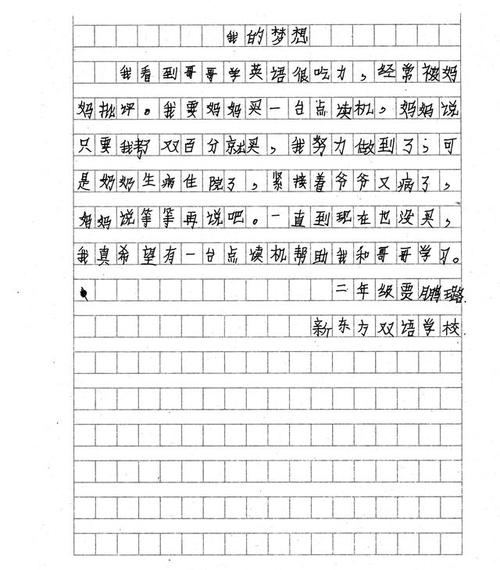 我的梦想
我看到哥哥学英语很吃力，经常被妈
妈批评。我要妈妈买一台点读机，妈妈说
只要我 双百分就买，我努力做到了；可
是奶奶生病住院了，紧接着爷爷又病了，
妈妈说等等再说吧。一直到现在也没买，
我真希望有一台点读机帮助我和哥哥学习。
二年级
新东方双语学校